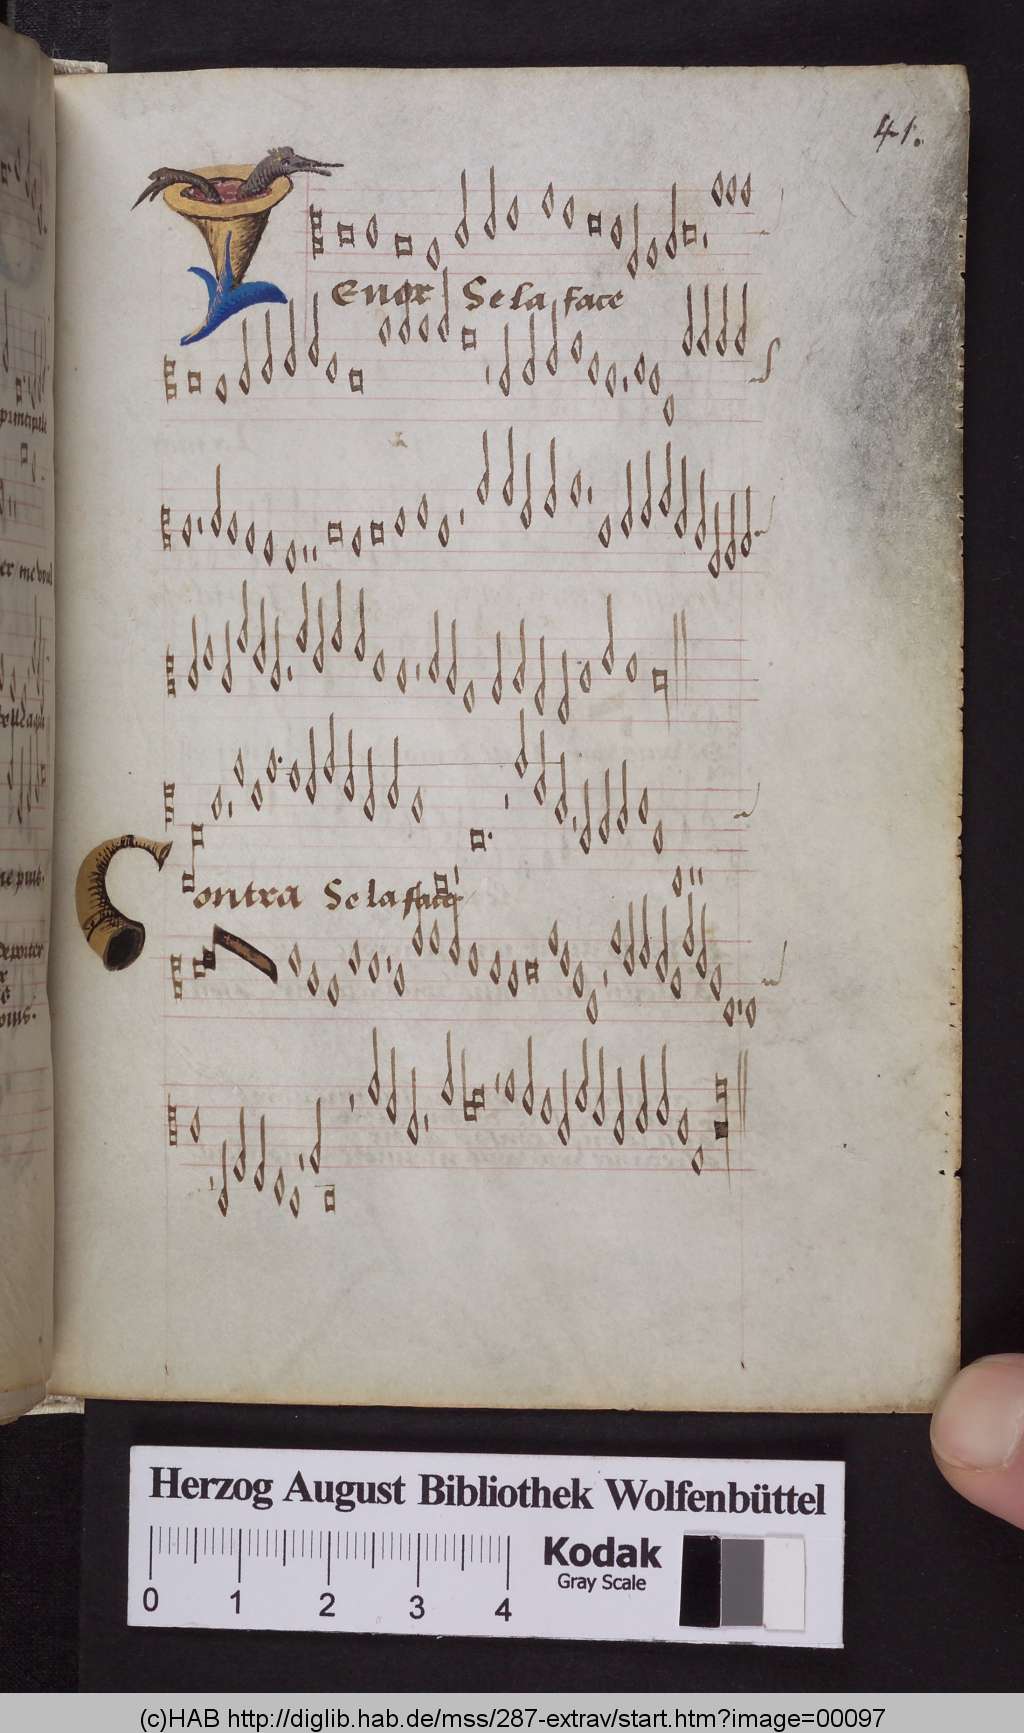 41.
Tenor Se la face
principale
Contra Se la face
ne puis.
Herzog August Bibliothek Wolfenbüttel
Kodak
Gray Scale
0 1 2 3 4
(c)HAB http://diglib.hab.de/mss/287-extrav/start.htm?image=00097